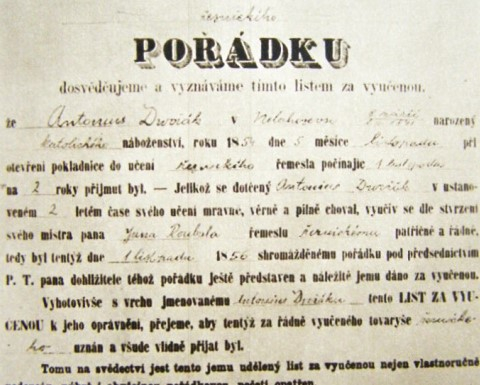 řeznického
POŘÁDKU
dosvědčujeme a vyznáváme tímto listem za vyučenou.
že Antonius Dvořák v Nelahozevsi narozený
katolického náboženství, roku 185 dne 5 měsíce listopadu při
otevření pokladnice do učení řeznického řemesla počínajíc 1 listopadu
na 2 roky přijmut byl. — Jelikož se dotčený Antonius Dvořák v ustano-
veném 2 letém čase svého učení mravně, věrně a pilně choval, vyučiv se dle stvrzení
svého mistra pana Jana Roubala řemeslu řeznickému patřičně a řádně,
tedy byl tentýž dne 1 listopadu 1856 shromážděnému pořádku pod předsednictvím
P. T. pana dohližitele téhož pořádku ještě představen a náležitě jemu dáno za vyučenou.
Vyhotovivše s vrchu jmenovanému Antoniusu Dvořáku tento LIST ZA VYU-
ČENOU k jeho oprávnění, přejeme, aby tentýž za řádně vyučeného tovaryše řeznické-
ho uznán a všude vlídně přijat byl.
Tomu na svědectví jest tento jemu udělený list za vyučenou nejen vlastnoručně